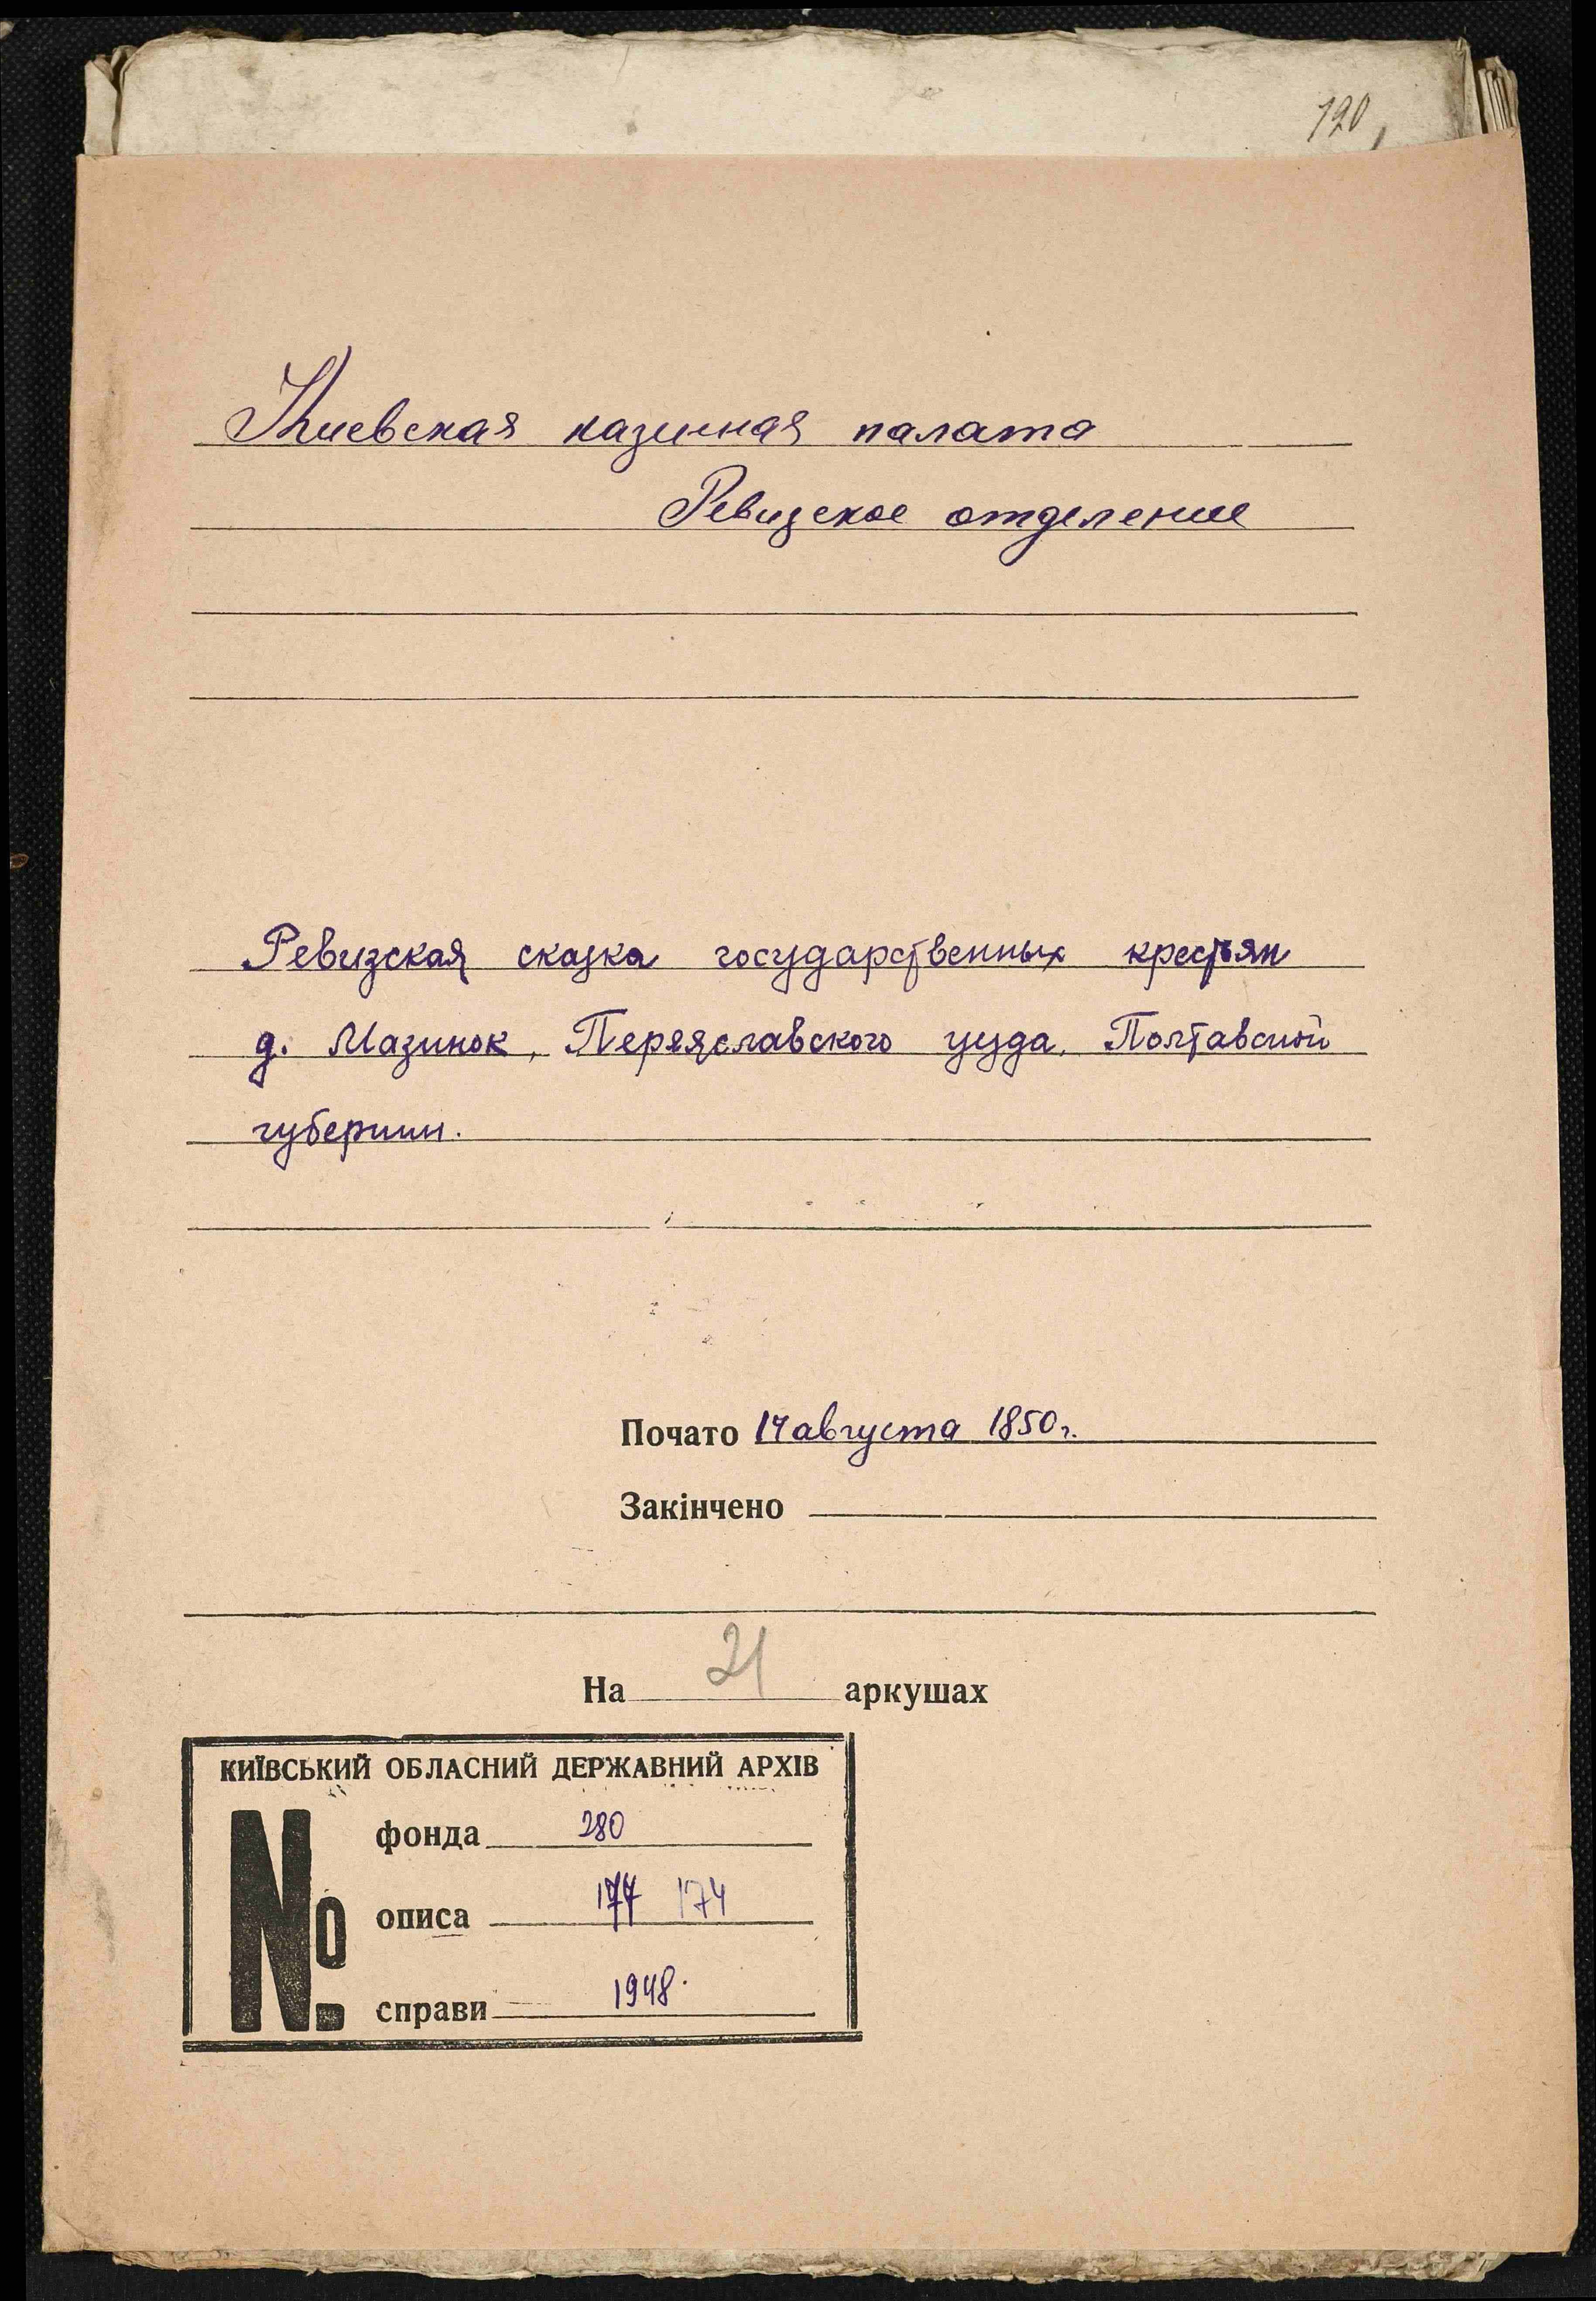 120
Киевская казенная палата
Ревизское отделение
Ревизская сказка государственных крестьян
д. Мазинок, Переяславского уезда, Полтавской
губернии.
Почато 14 августа 1850 г.
Закінчено
На 21 аркушах
КИЇВСЬКИЙ ОБЛАСНИЙ ДЕРЖАВНИЙ АРХІВ
№
фонда 280
описа 177 174
справи 1948.